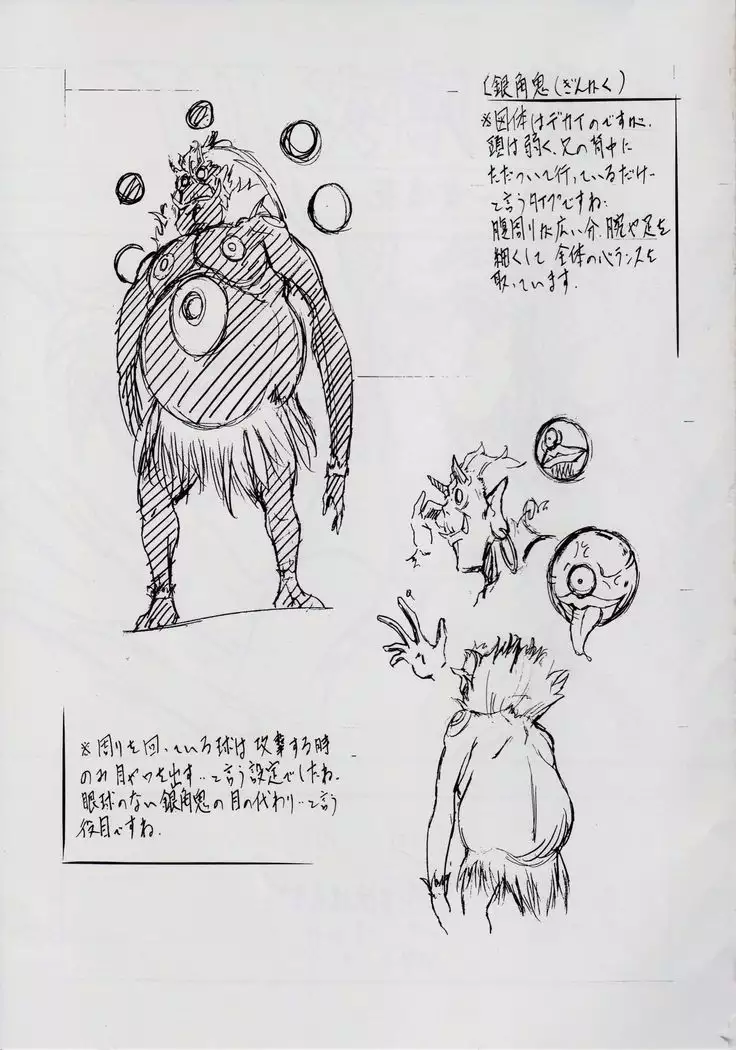 銀角鬼(ぎんかく)
※図体はデカイのですが、
頭は弱く、兄の背中に
ただついて行っているだけ…
と言うタイプですね。
腹周りが広い分、腕や足を
細くして全体のバランスを
取っています。
※周りを回っている球は攻撃する時
のみ目やつを出す…と言う設定でしたね。
眼球のない銀角鬼の目の代わり…と言う
役目ですね。